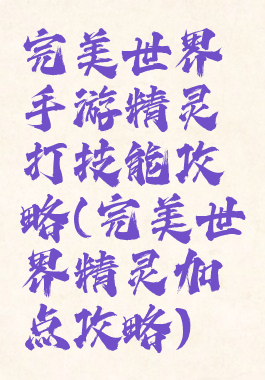 完美世界
手游精灵
打技能攻
略(完美世
界精灵加
点攻略)